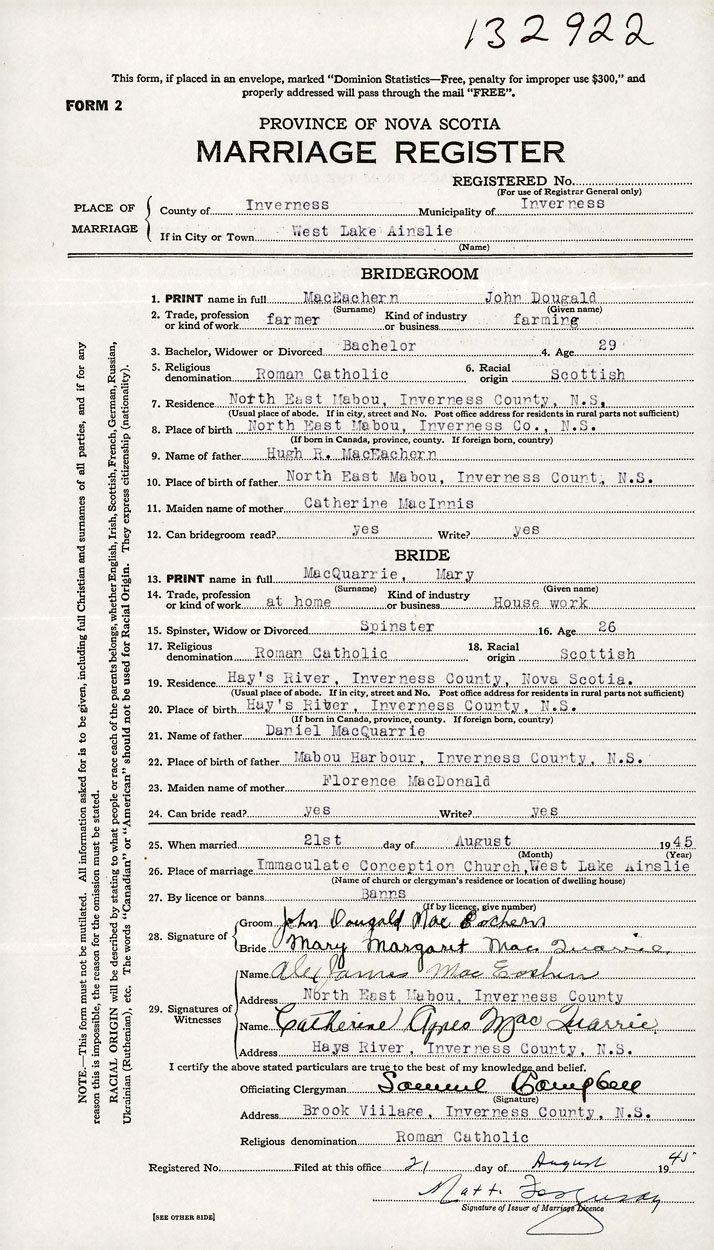 132922
This form, if placed in an envelope, marked "Dominion Statistics—Free, penalty for improper use $300," and
properly addressed will pass through the mail "FREE".
FORM 2
PROVINCE OF NOVA SCOTIA
MARRIAGE REGISTER
REGISTERED No.
(For use of Registrar General only)
PLACE OF MARRIAGE
County of Inverness Municipality of Inverness
If in City or Town West Lake Ainslie
(Name)
BRIDEGROOM
1. PRINT name in full MacEachern John Dougald
(Surname) (Given name)
2. Trade, profession or kind of work farmer Kind of industry or business farming
3. Bachelor, Widower or Divorced Bachelor 4. Age 29
5. Religious denomination Roman Catholic 6. Racial origin Scottish
7. Residence North East Mabou, Inverness County, N.S.
(Usual place of abode. If in city, street and No. Post office address for residents in rural parts not sufficient)
8. Place of birth North East Mabou, Inverness Co., N.S.
(If born in Canada, province, county. If foreign born, country)
9. Name of father Hugh R. MacEachern
10. Place of birth of father North East Mabou, Inverness Count, N.S.
11. Maiden name of mother Catherine MacInnis
12. Can bridegroom read? yes Write? yes
BRIDE
13. PRINT name in full MacQuarrie, Mary
(Surname) (Given name)
14. Trade, profession or kind of work at home Kind of industry or business House work
15. Spinster, Widow or Divorced Spinster 16. Age 26
17. Religious denomination Roman Catholic 18. Racial origin Scottish
19. Residence Hay's River, Inverness County, Nova Scotia.
(Usual place of abode. If in city, street and No. Post office address for residents in rural parts not sufficient)
20. Place of birth Hay's River, Inverness County, N.S.
(If born in Canada, province, county. If foreign born, country)
21. Name of father Daniel MacQuarrie
22. Place of birth of father Mabou Harbour, Inverness County, N.S.
23. Maiden name of mother Florence MacDonald
24. Can bride read? yes Write? yes
25. When married 21st day of August 1945
(Month) (Year)
26. Place of marriage Immaculate Conception Church, West Lake Ainslie
(Name of church or clergyman's residence or location of dwelling house)
27. By licence or banns Banns
(If by licence, give number)
28. Signature of
Groom John Dougald Mac Eachern
Bride Mary Margaret Mac Quarrie
29. Signatures of Witnesses
Name Alex James Mac Eachern
Address North East Mabou, Inverness County
Name Catherine Agnes Mac Quarrie
Address Hays River, Inverness County, N.S.
I certify the above stated particulars are true to the best of my knowledge and belief.
Officiating Clergyman Samuel Campbell
(Signature)
Address Brook Viilage, Inverness County, N.S.
Religious denomination Roman Catholic
Registered No. Filed at this office 21 day of August 1945
Matt. Ferguson
Signature of Issuer of Marriage Licence
[SEE OTHER SIDE]
NOTE.—This form must not be mutilated. All information asked for is to be given, including full Christian and surnames of all parties, and if for any
reason this is impossible, the reason for the omission must be stated.
RACIAL ORIGIN will be described by stating to what people or race each of the parents belongs, whether English, Irish, Scottish, French, German, Russian,
Ukrainian (Ruthenian), etc. The words "Canadian" or "American" should not be used for Racial Origin. They express citizenship (nationality).